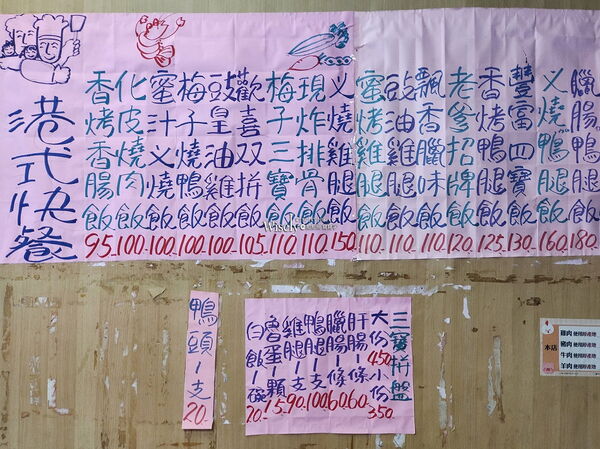 港式快餐
香烤香腸飯 95
化皮燒肉飯 100
蜜汁义燒飯 100
梅子燒鴨飯 100
豉皇油雞飯 100
歡喜双拼飯 105
梅子三寶飯 110
現炸排骨飯 110
义燒雞腿飯 150
蜜烤雞腿飯 110
豉油雞腿飯 110
飄香臘味飯 110
老爹招牌飯 120
香烤鴨腿飯 125
豐富四寶飯 130
义燒鴨腿飯 160
臘腸鴨腿飯 180
鴨頭一支 20
白飯一碗 20
魯蛋一顆 15
雞腿一支 90
鴨腿一支 100
臘腸一條 60
肝腸一條 60
大份 450 小份 350
三寶拼盤
本店
雞肉
豬肉
牛肉
羊肉